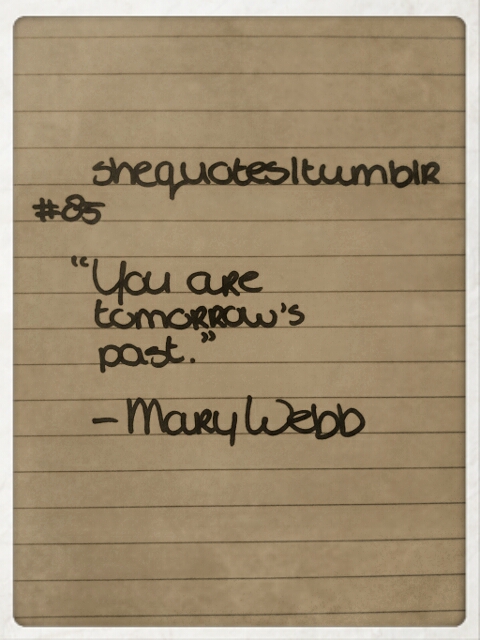 shequotes|tumblr
#85
"You are
tomorrow's
past."
- Mary Webb